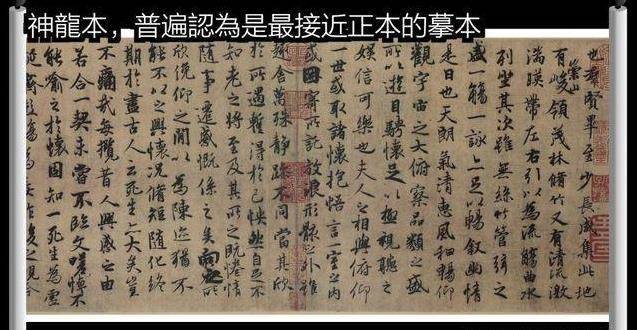 神龍本，普遍認為是最接近正本的摹本
也羣賢畢至少長咸集此地
有崇山峻領茂林脩竹又有清流激
湍暎帶左右引以為流觴曲水
列坐其次雖無絲竹管弦之
盛一觴一詠亦足以暢敘幽情
是日也天朗氣清惠風和暢仰
觀宇宙之大俯察品類之盛
所以遊目騁懷足以極視聽之
娛信可樂也夫人之相與俯仰
一世或取諸懷抱悟言一室之內
或因寄所託放浪形骸之外雖
趣舍萬殊靜躁不同當其欣
於所遇暫得於己怏然自足不
知老之將至及其所之既惓情
隨事遷感慨係之矣向之所
欣俛仰之閒以為陳迹猶不
能不以之興懷況脩短隨化終
期於盡古人云死生亦大矣豈
不痛哉每攬昔人興感之由
若合一契未嘗不臨文嗟悼不
能喻之於懷固知一死生為虛